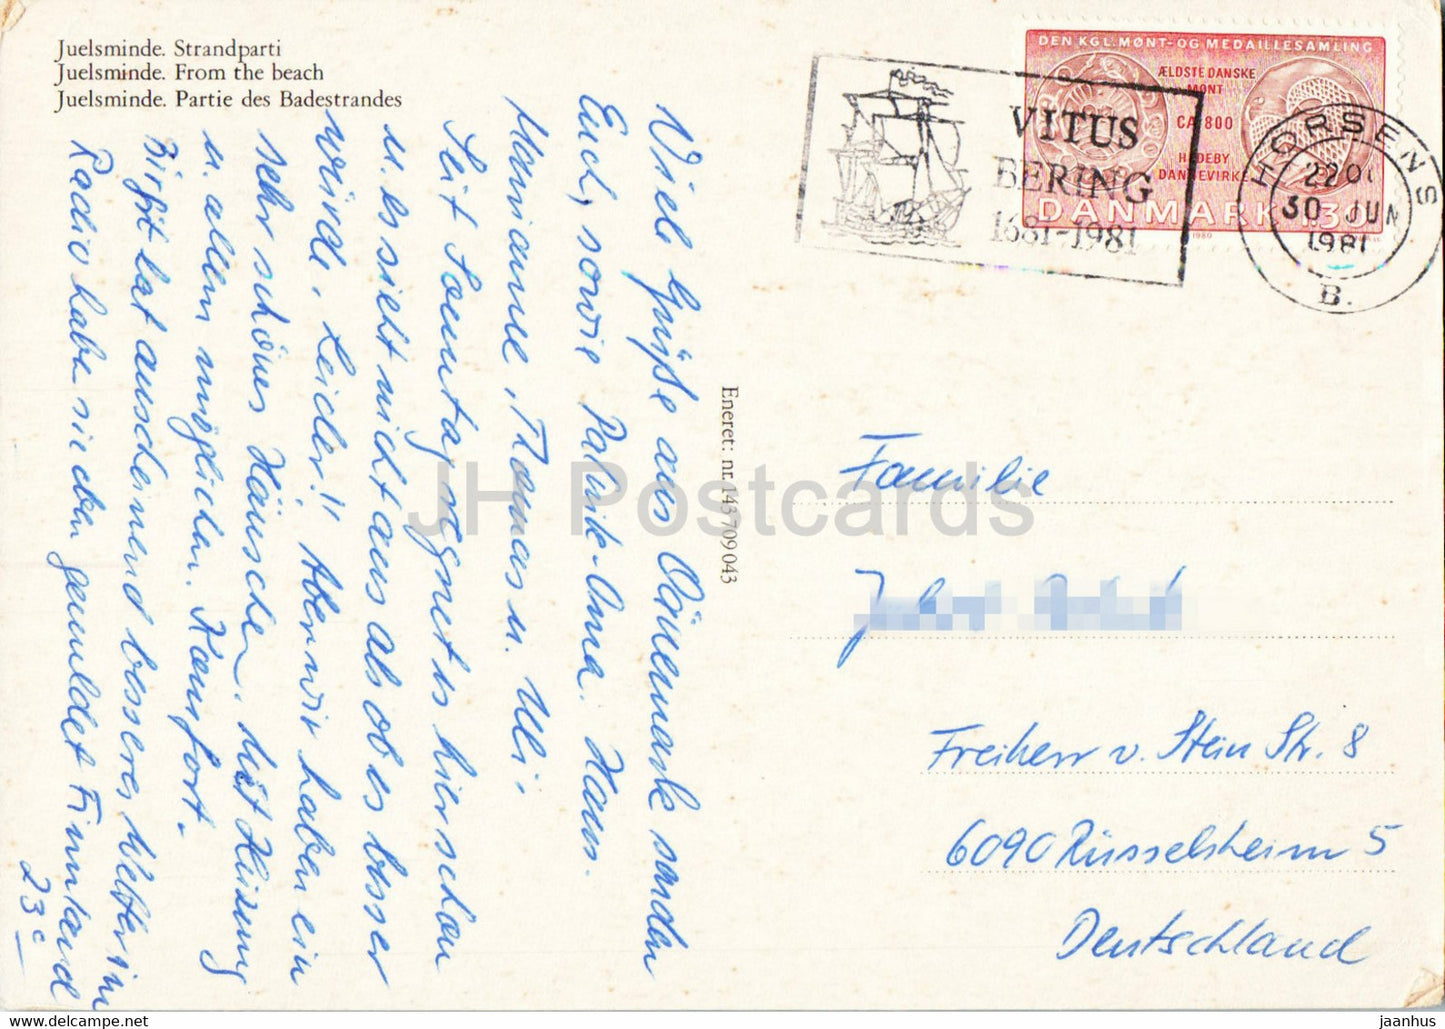 Juelsminde. Strandparti
Juelsminde. From the beach
Juelsminde. Partie des Badestrandes
DEN KGL. MØNT- OG MEDAILLESAMLING
ÆLDSTE DANSKE
MØNT
CA 800
HEDEBY
DANNEVIRKE
DANMARK 130
1980
VITUS
BERING
1681-1981
HORSENS
220
30 JUN
1981
B.
Viele Grüße aus Dänemark senden
Euch, sowie Patrik-Oma. Hans.
Marianne, Thomas u. Uli.
Seit Sonntag regnet es hier schon
u. es sieht nicht aus als ob es besser
würde, Leider!! Aber wir haben ein
sehr schönes Häuschen, mit Heizung
u. allem möglichen Komfort.
Birgit hat anscheinend besseres Wetter im
Radio habe sie eben gemeldet Finnland
23°
Eneret: nr. 143 709 043
Familie
Freiherr v. Stein Str. 8
6090 Rüsselsheim 5
Deutschland
JH Postcards
jaanhus
https://jhpostcards.com